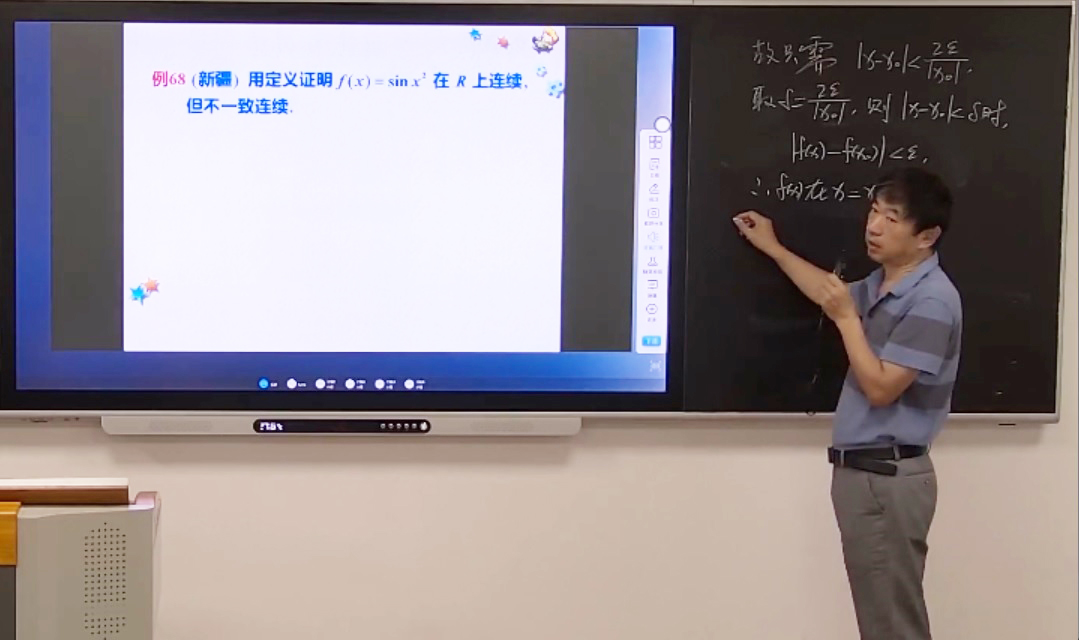 例68 (新疆) 用定义证明 f(x) = sin x² 在 R 上连续,
但不一致连续.
故只需 |x-x₀| < 2ε/|x₀|.
取 δ = 2ε/|x₀|, 则 |x-x₀| < δ时,
|f(x) - f(x₀)| < ε,
∴ f(x)在 x = x